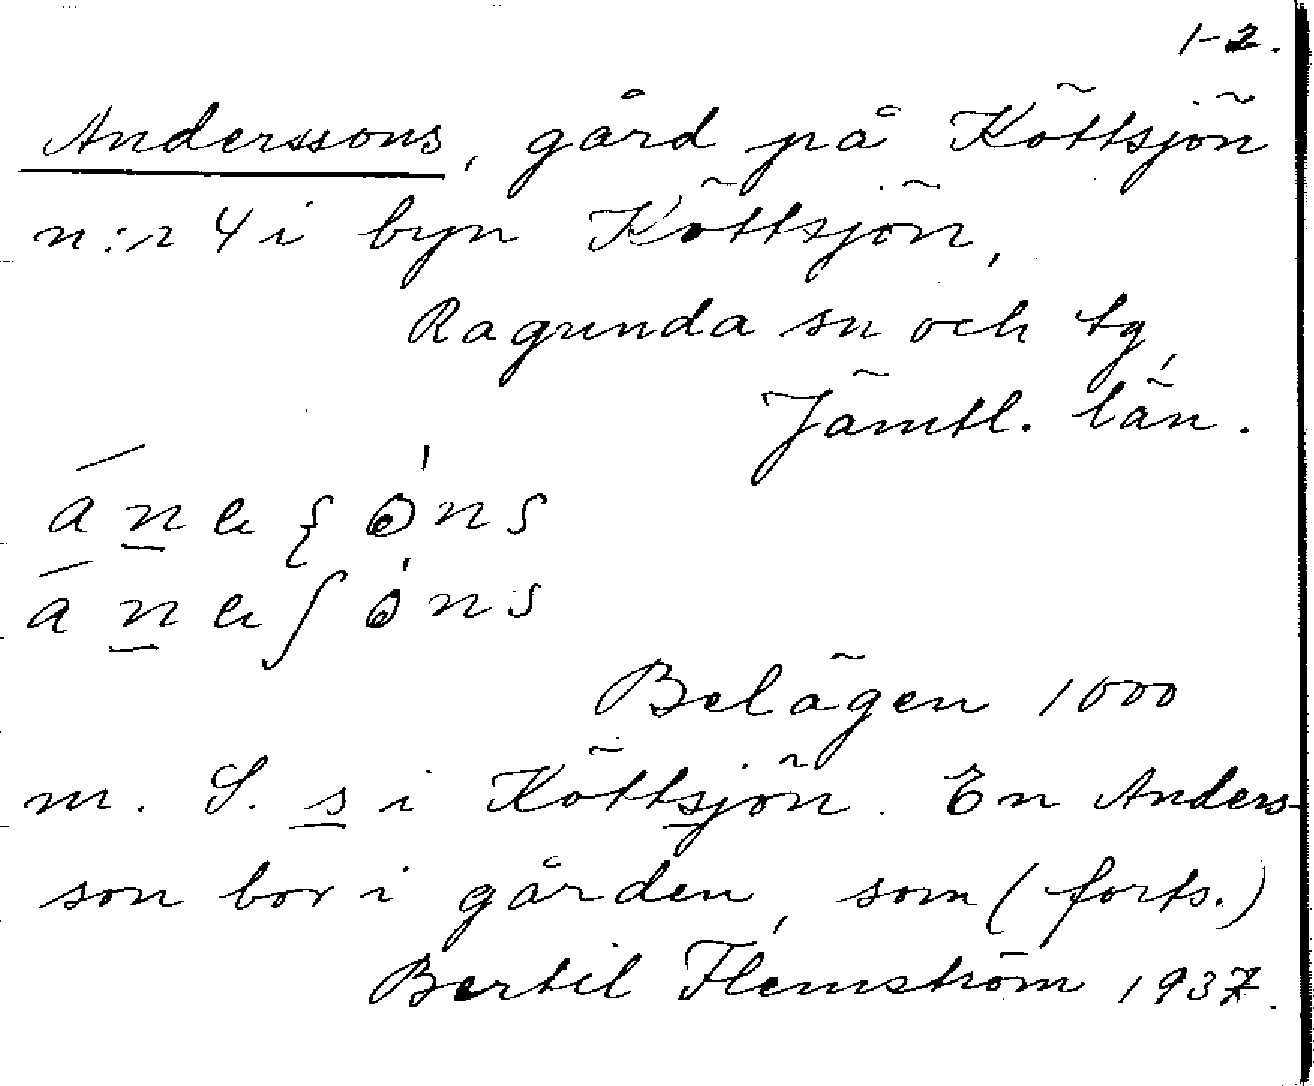 1-2.
Anderssons, gård på Köttsjön
n:r 4 i byn Köttsjön,
Ragunda sn och tg,
Jämtl. län.
Belägen 1000
m. S. s i Köttsjön. En Anders-
son bor i gården, som (forts.)
Bertil Flemström 1937.